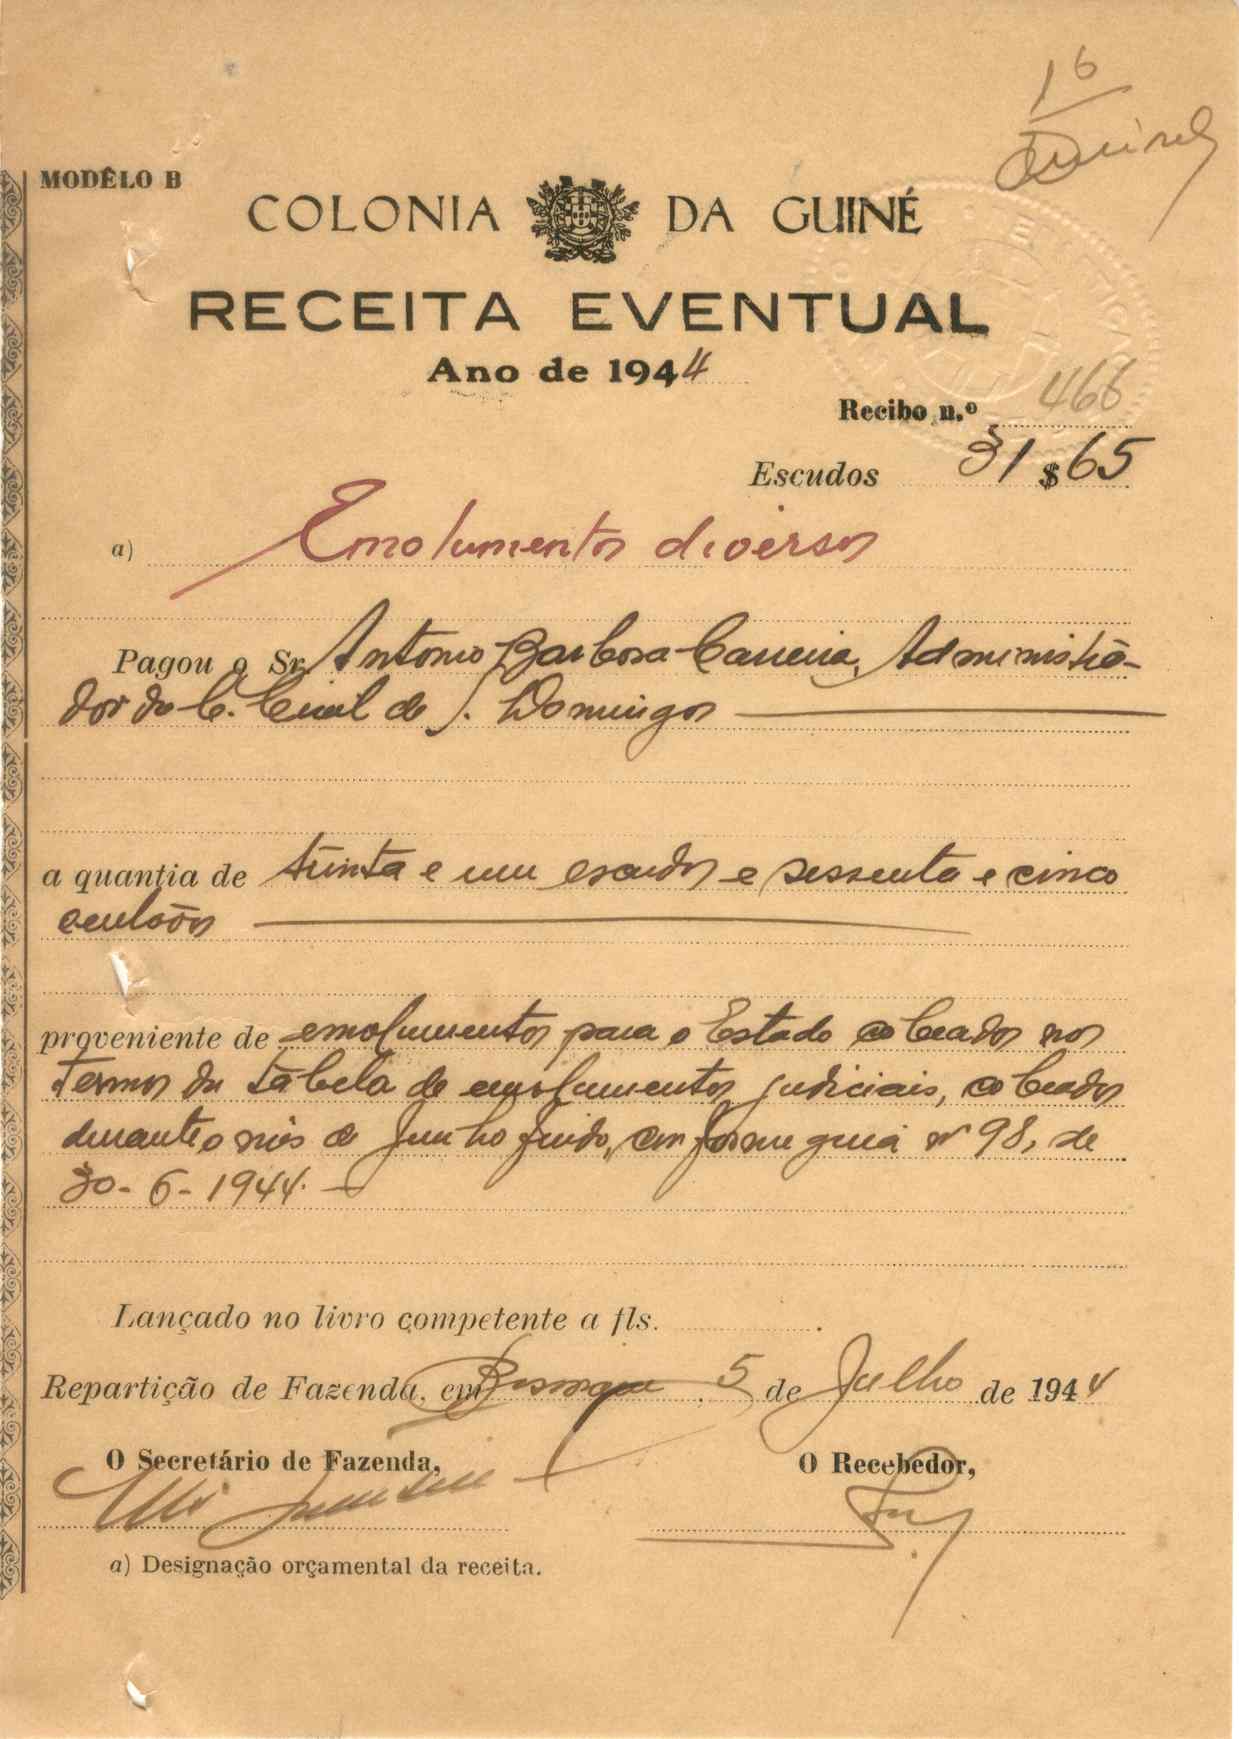 16
MODÊLO B
COLONIA DA GUINÉ
RECEITA EVENTUAL
Ano de 1944
Recibo n.º 466
Escudos 31$65
a) Emolumentos diversos
Pagou o Sr. Antonio Barbosa Carreira, Administra-
dor da C. Civil de S. Domingos
a quantia de trinta e um escudos e sessenta e cinco
centavos
proveniente de emolumentos para o Estado cobrados nos
Termos da Tabela de emolumentos judiciais, cobrados
durante o mês de Junho findo, conforme guia nº 98, de
30-6-1944.
Lançado no livro competente a fls. .
Repartição de Fazenda, em , 5 de Julho de 1944
O Secretário de Fazenda,
O Recebedor,
a) Designação orçamental da receita.